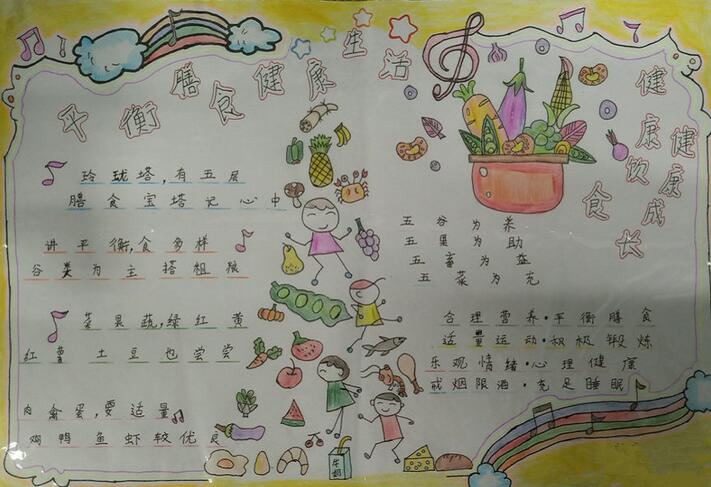 平衡膳食健康生活
玲珑塔,有五层
膳食宝塔记心中
讲平衡,食多样
谷类为主搭粗粮
菜果蔬,绿红黄
红薯土豆也尝尝
肉禽蛋,要适量
鸡鸭鱼虾较优良
牛奶
健康饮食
健康成长
五谷为养
五果为助
五畜为益
五菜为充
合理营养·平衡膳食
适量运动·积极锻炼
乐观情绪·心理健康
戒烟限酒·充足睡眠